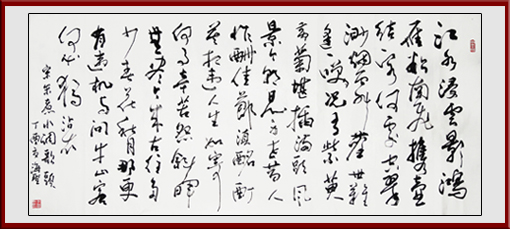 江水浸雲影鴻
雁欲南飛攜壺
結客何處空翠
渺煙霏塵世難
逢一笑況有紫萸黃
菊堪插滿頭歸風
景今朝是身世昔人
非酬佳節須酩酊
莫相違人生如寄
何事辛苦怨斜暉
無盡今來古往多
少春花秋月那更
有危機與問牛山客
何必獨沾衣
宋朱熹水調歌頭
丁酉